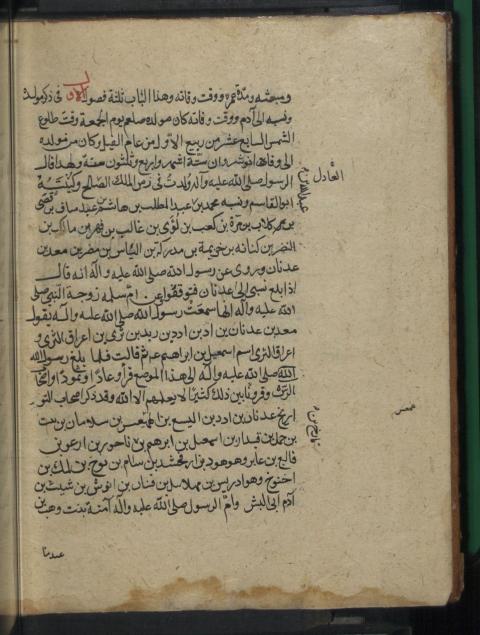 ومبعثه ومدة عمره ووقت وفاته وهذا الباب ثلثة فصول الاول فى ذكر مولده
ونسبه الى آدم ووقت وفاته كان مولده صلعم يوم الجمعة وقت طلوع
الشمس السابع عشر من ربيع الاول من عام الفيل وكان من مولده
الى وفاة انوشروان ستة اشهر واربع وثلثون سنة ولهذا قال
الرسول صلى الله عليه وآله ولدت فى زمن الملك الصالح وكنيته
العادل
ابو القاسم ونسبه محمد بن عبد المطلب بن هاشم بن عبد مناف بن قصى
عبد الله بن
بن كلاب بن مرة بن كعب بن لؤى بن غالب بن فهر بن مالك بن
النضر بن كنانه بن خزيمة بن مدركة بن الياس بن مضر بن معد بن
عدنان وروى عن رسول الله صلى الله عليه وآله انه قال
اذا بلغ نسبى الى عدنان فتوقفوا عن ام سلمه زوجة النبى صلى
الله عليه وآله انها سمعت رسول الله صلى الله عليه وآله يقول
معد بن عدنان بن اد بن ادد بن زيد بن ثرى بن اعراق الثرى و
اعراق الثرى اسم اسمعيل بن ابراهيم عم ثم قالت فلما بلغ رسول الله
الله صلى الله عليه وآله الى هذا الموضع قرأ وعادا وثمودا واصحاب
الرس وقرونا بين ذلك كثيرا لا يعلمهم الا الله وقد ذكر اصحاب التو
اريخ عدنان بن اد بن ادد بن اليسع بن الهميسع بن سلامان بن نبت
بن حمل بن قيدار بن اسمعيل بن ابرهيم بن ناحور بن ارعو بن
تارخ بن
فالج بن عابر وهو هود بن ارفخشد بن سام بن نوح بن لمك بن
اخنوخ وهو ادريس بن مهلائيل بن قينان بن انوش بن شيث بن
آدم ابى البشر وام الرسول صلى الله عليه وآله آمنة بنت وهب بن
عبد منا